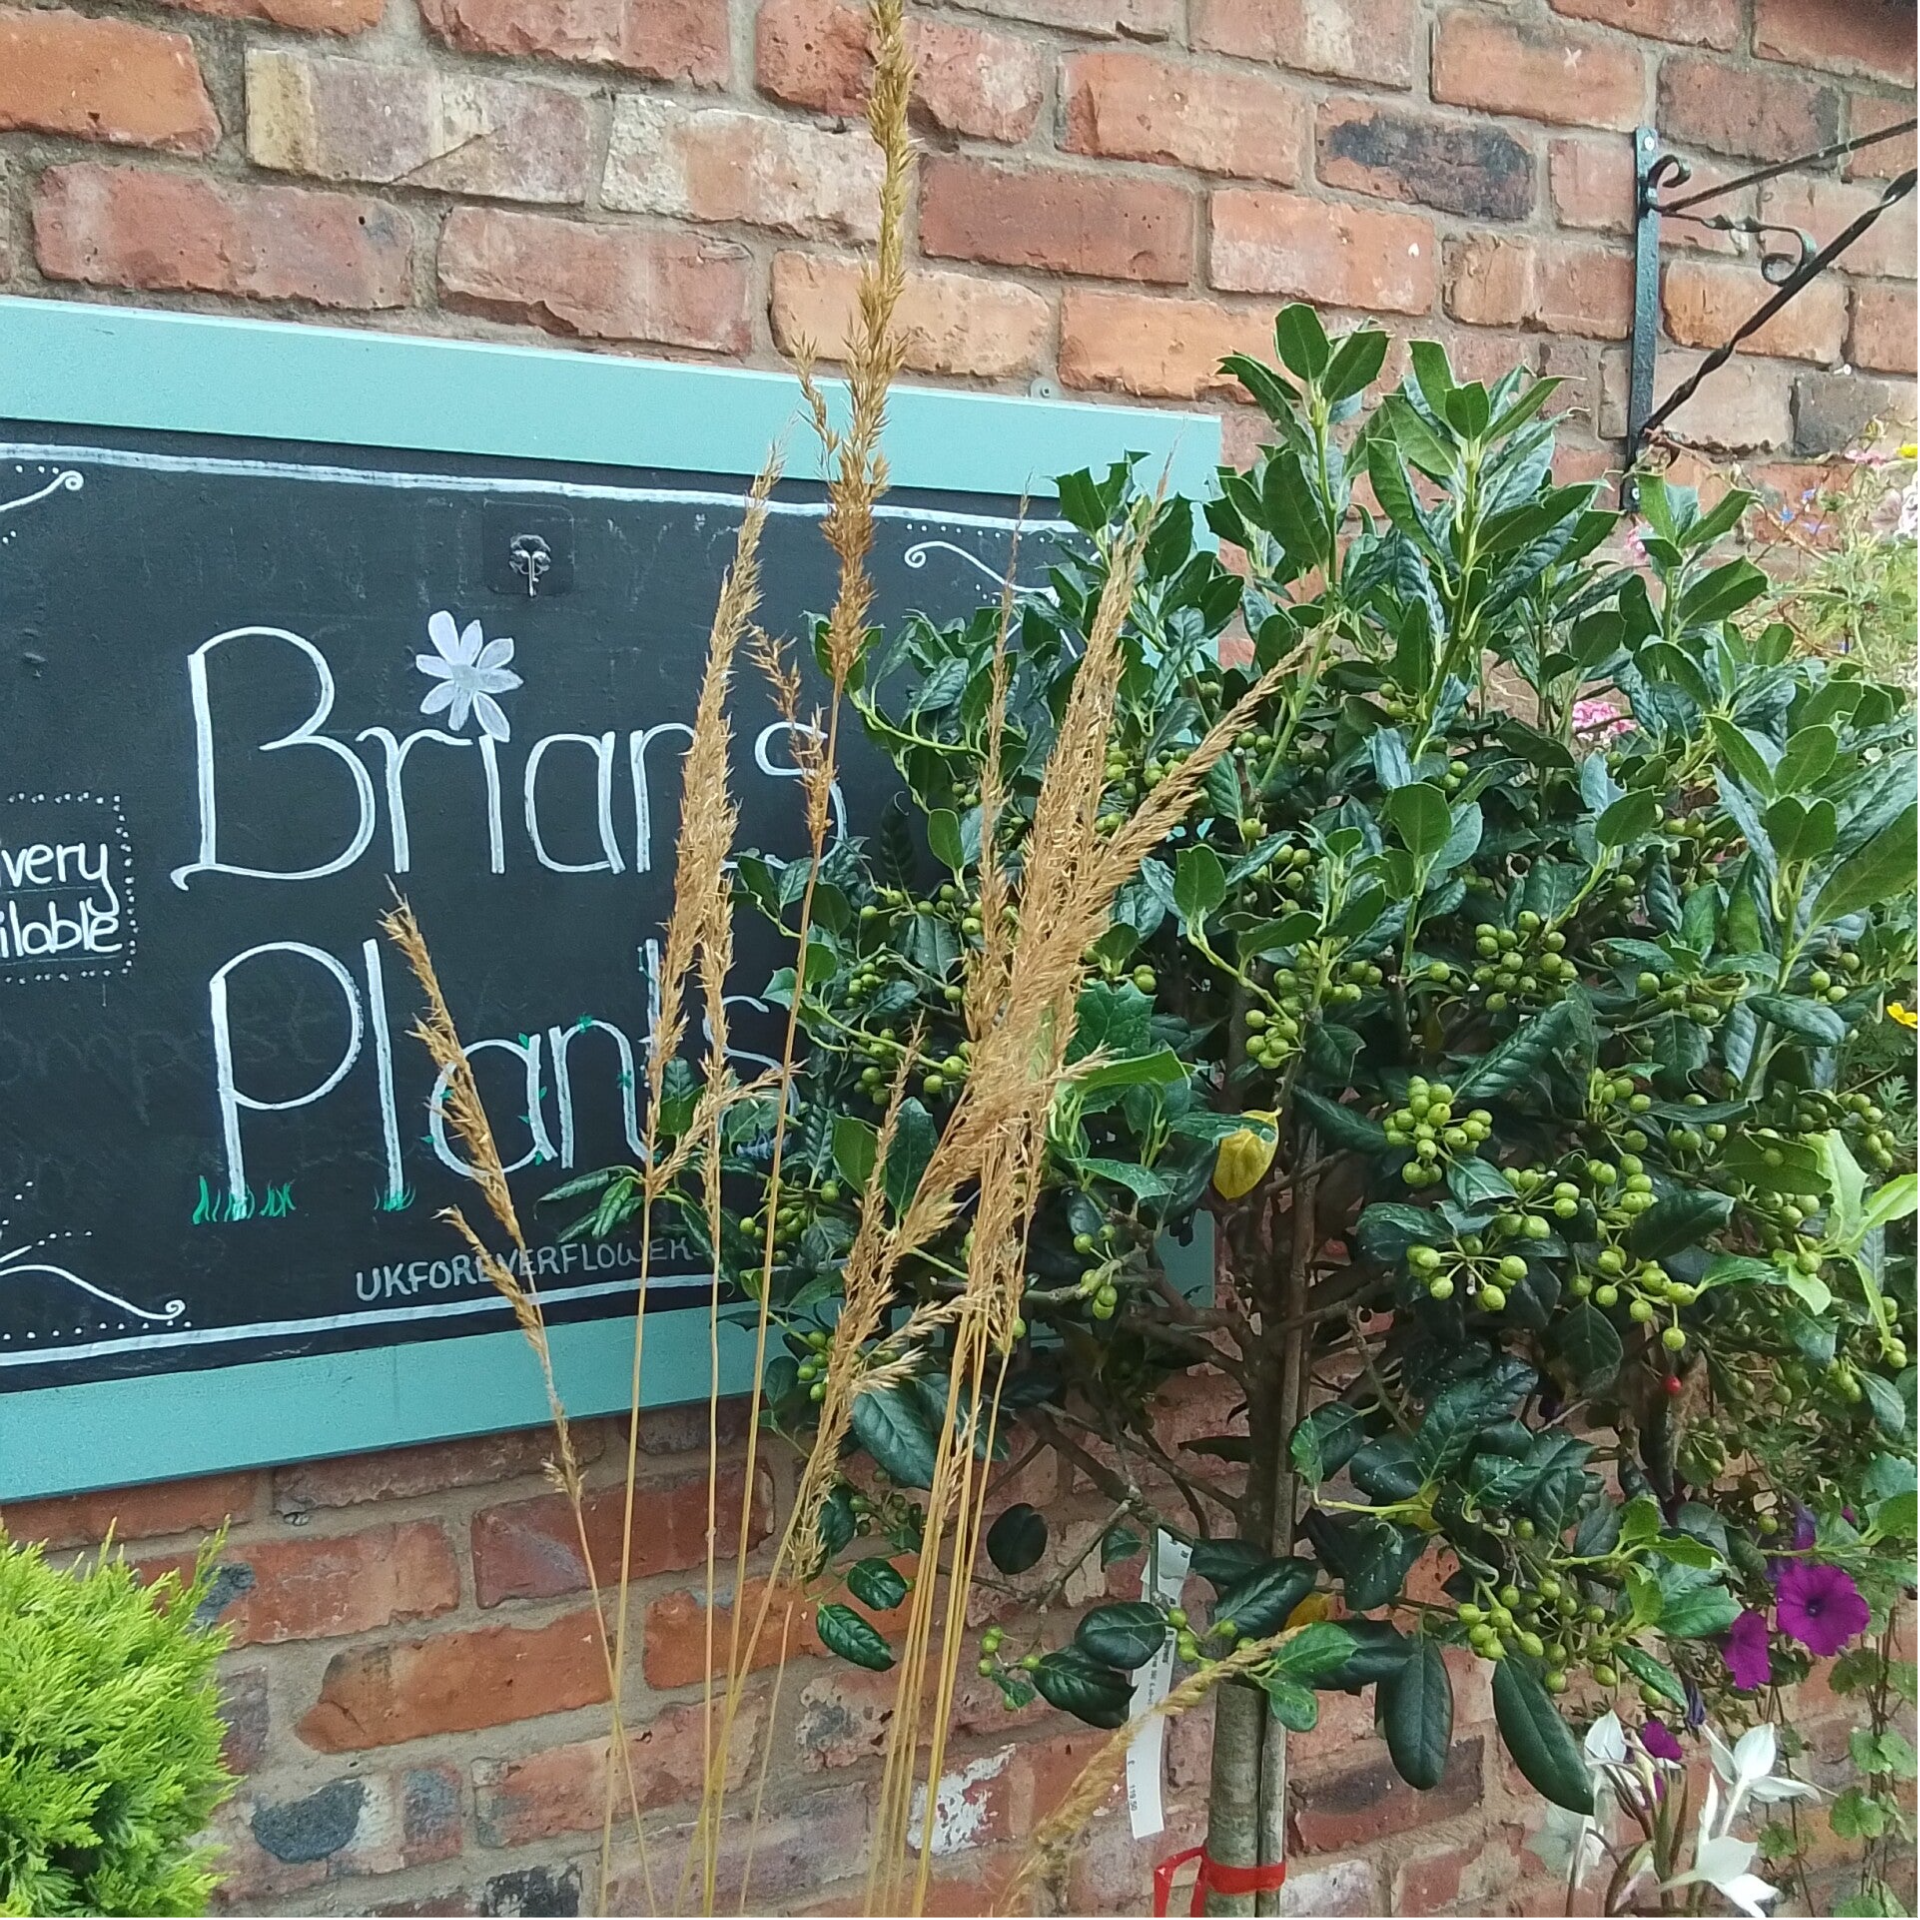 Brians
Plants
ivery
ilable
UKFOREVERFLOWERS